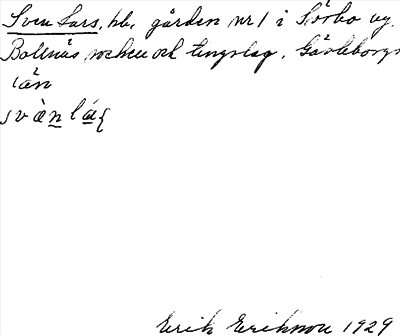 Sven Lars, hb, gården nr 1 i Sörbo by.
Bollnäs socken och tingslag, Gävleborgs
län
svà̀n lá
Erik Eriksson 1929